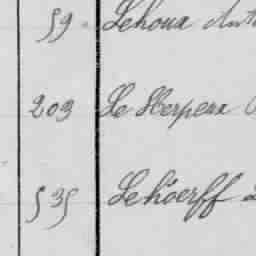 59 Lehoux
209 Le Herpeux
535 Lehoerff